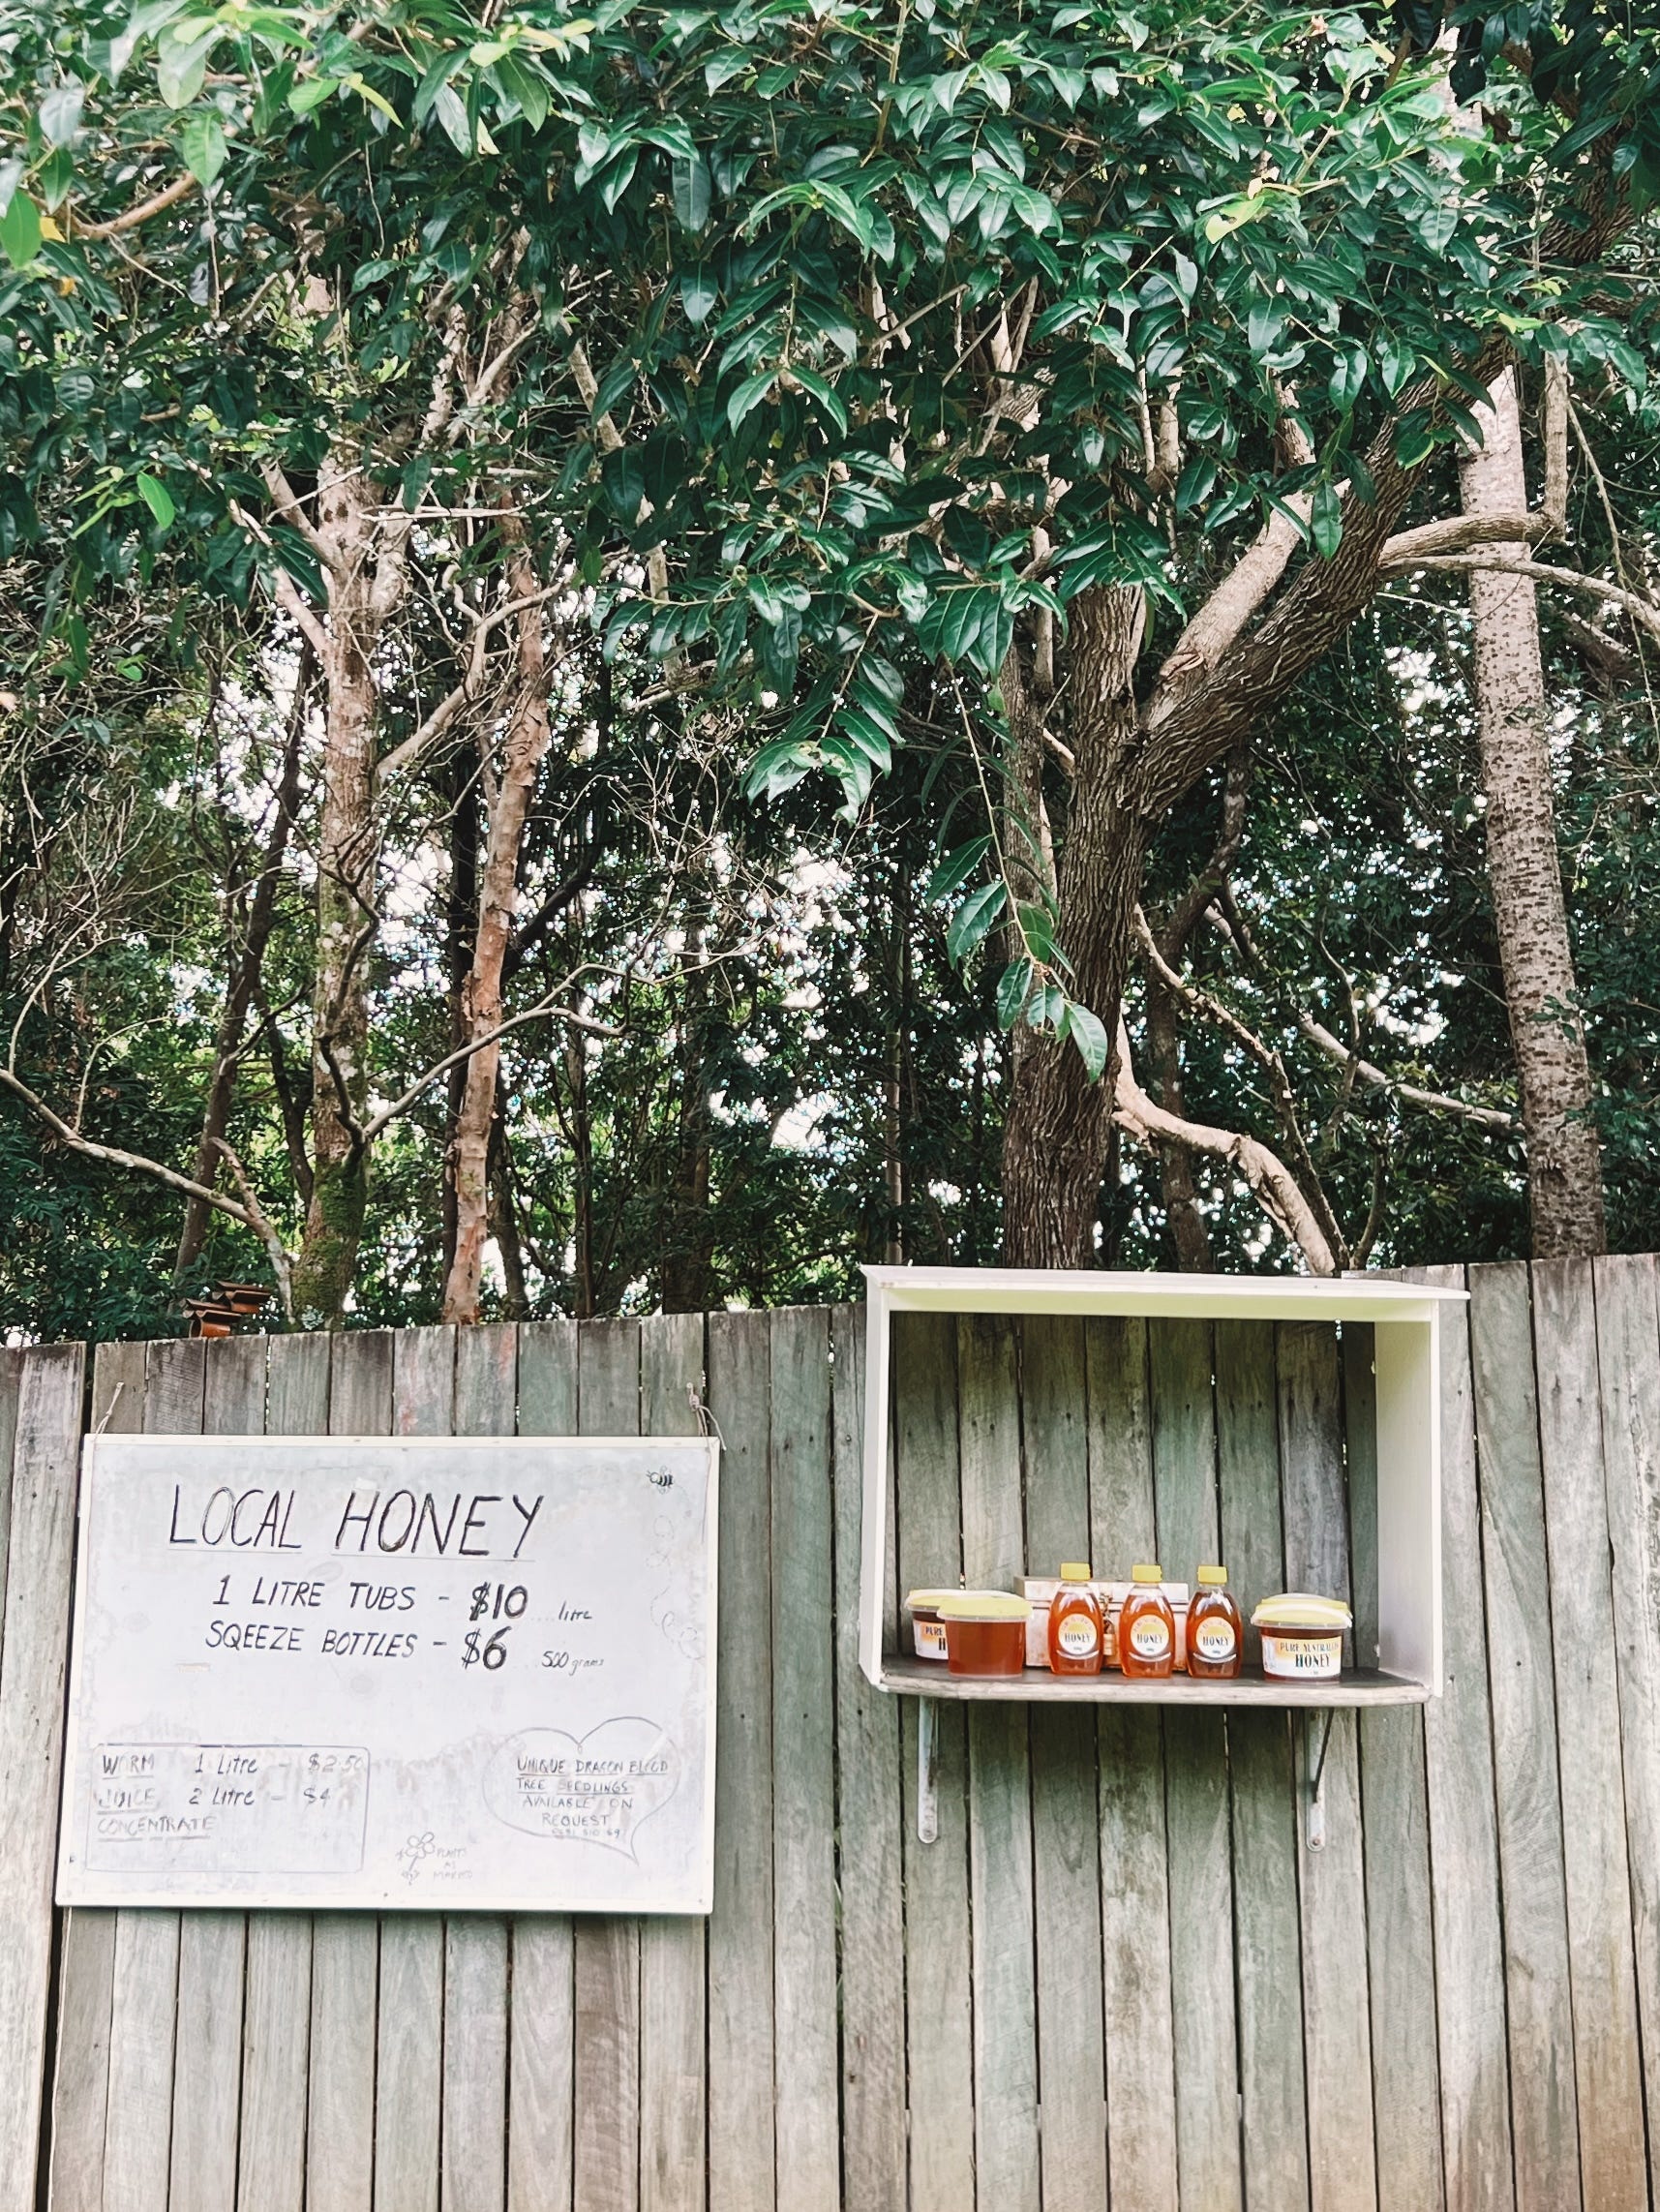 LOCAL HONEY
1 LITRE TUBS - $10 litre
SQEEZE BOTTLES - $6 500 grams
WORM 1 Litre - $2.50
JUICE 2 Litre - $4
CONCENTRATE
UNIQUE DRAGON BLOOD
TREE SEEDLINGS
AVAILABLE ON
REQUEST
PLANTS
AS
MARKED
PURE
H
HONEY
HONEY
HONEY
PURE AUSTRALIAN
HONEY